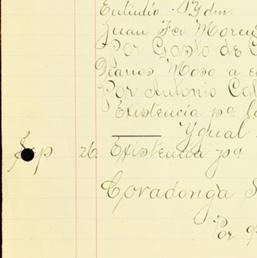 Eutiudio Ydm.
Juan Fco Moreu
Por Gasto de C
Diarios Moso a e
Por Antonio Cal
Existencia pa la
Ygual
Sep 26 Existencia pa
Covadonga S
Por g